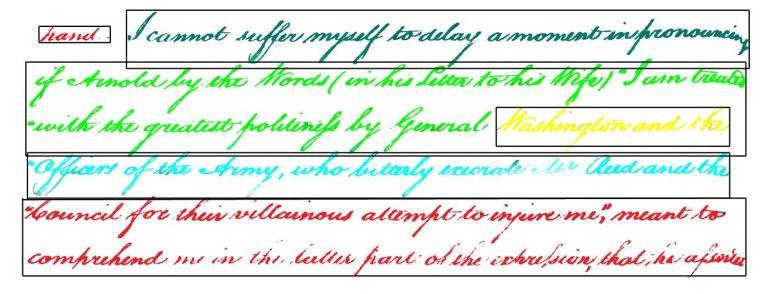 hand. I cannot suffer myself to delay a moment in pronouncing
if Arnold by the Words (in his Letter to his Wife) "I am treated
"with the greatest politeness by General Washington and the
"Officers of the Army, who bitterly execrate Mr Reed and the
"Council for their villainous attempt to injure me," meant to
comprehend me in the latter part of the expression, that he asserted